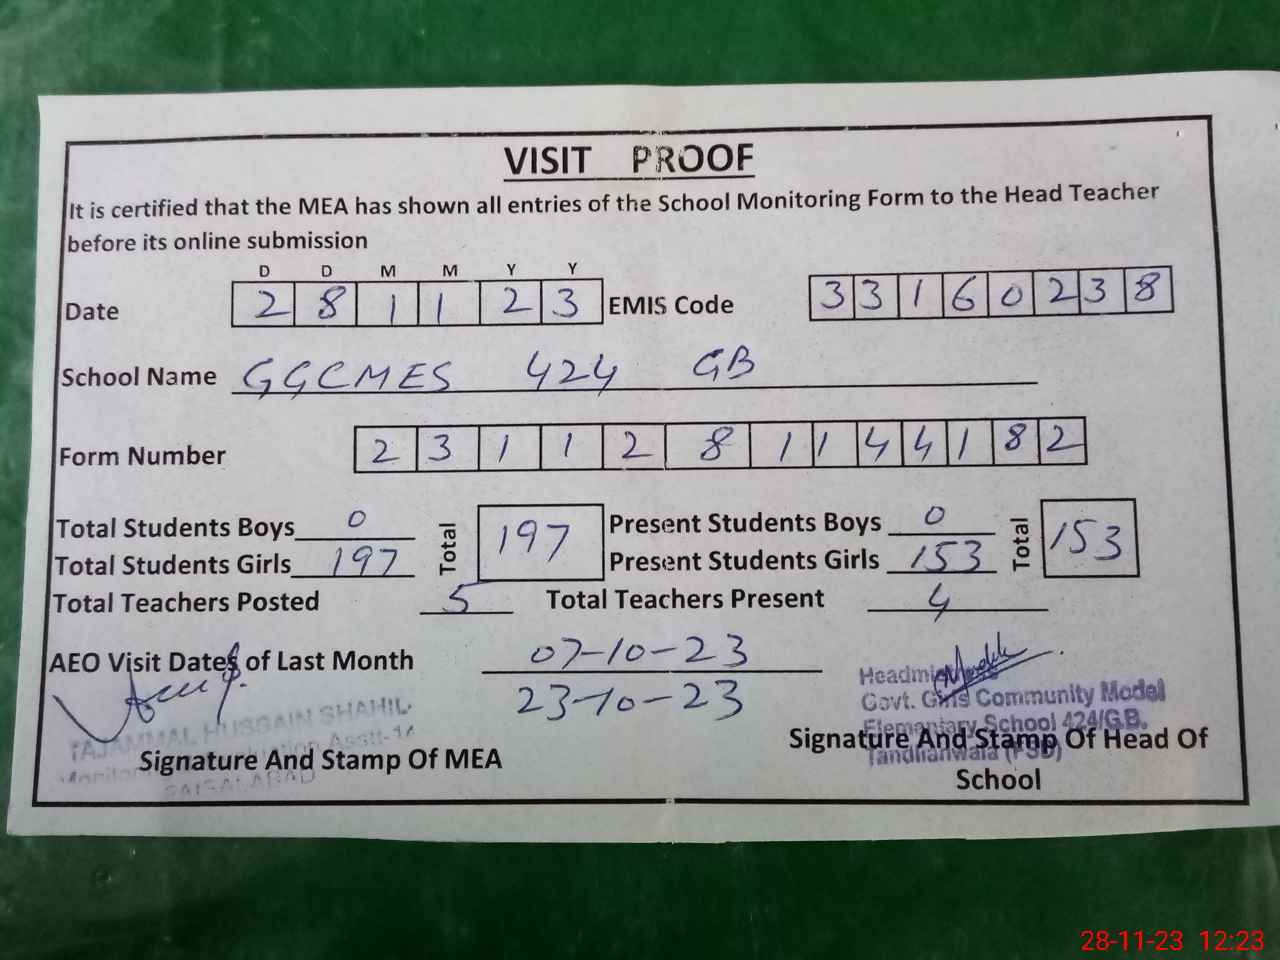 VISIT PROOF
It is certified that the MEA has shown all entries of the School Monitoring Form to the Head Teacher
before its online submission
D D M M Y Y
Date 2 8 1 1 2 3 EMIS Code 3 3 1 6 0 2 3 8
School Name GGCMES 424 GB
Form Number 2 3 1 1 2 8 1 1 4 4 1 8 2
Total Students Boys 0 Total 197 Present Students Boys 0 Total 153
Total Students Girls 197 Present Students Girls 153
Total Teachers Posted 5 Total Teachers Present 4
AEO Visit Dates of Last Month 07-10-23
23-10-23
TAJAMMAL HUSSAIN SHAHID
Asstt-14
Signature And Stamp Of MEA
Govt. Girls Community Model
Elementary School 424/G.B.
Tandlianwala (FSD)
Signature And Stamp Of Head Of
School
28-11-23 12:23